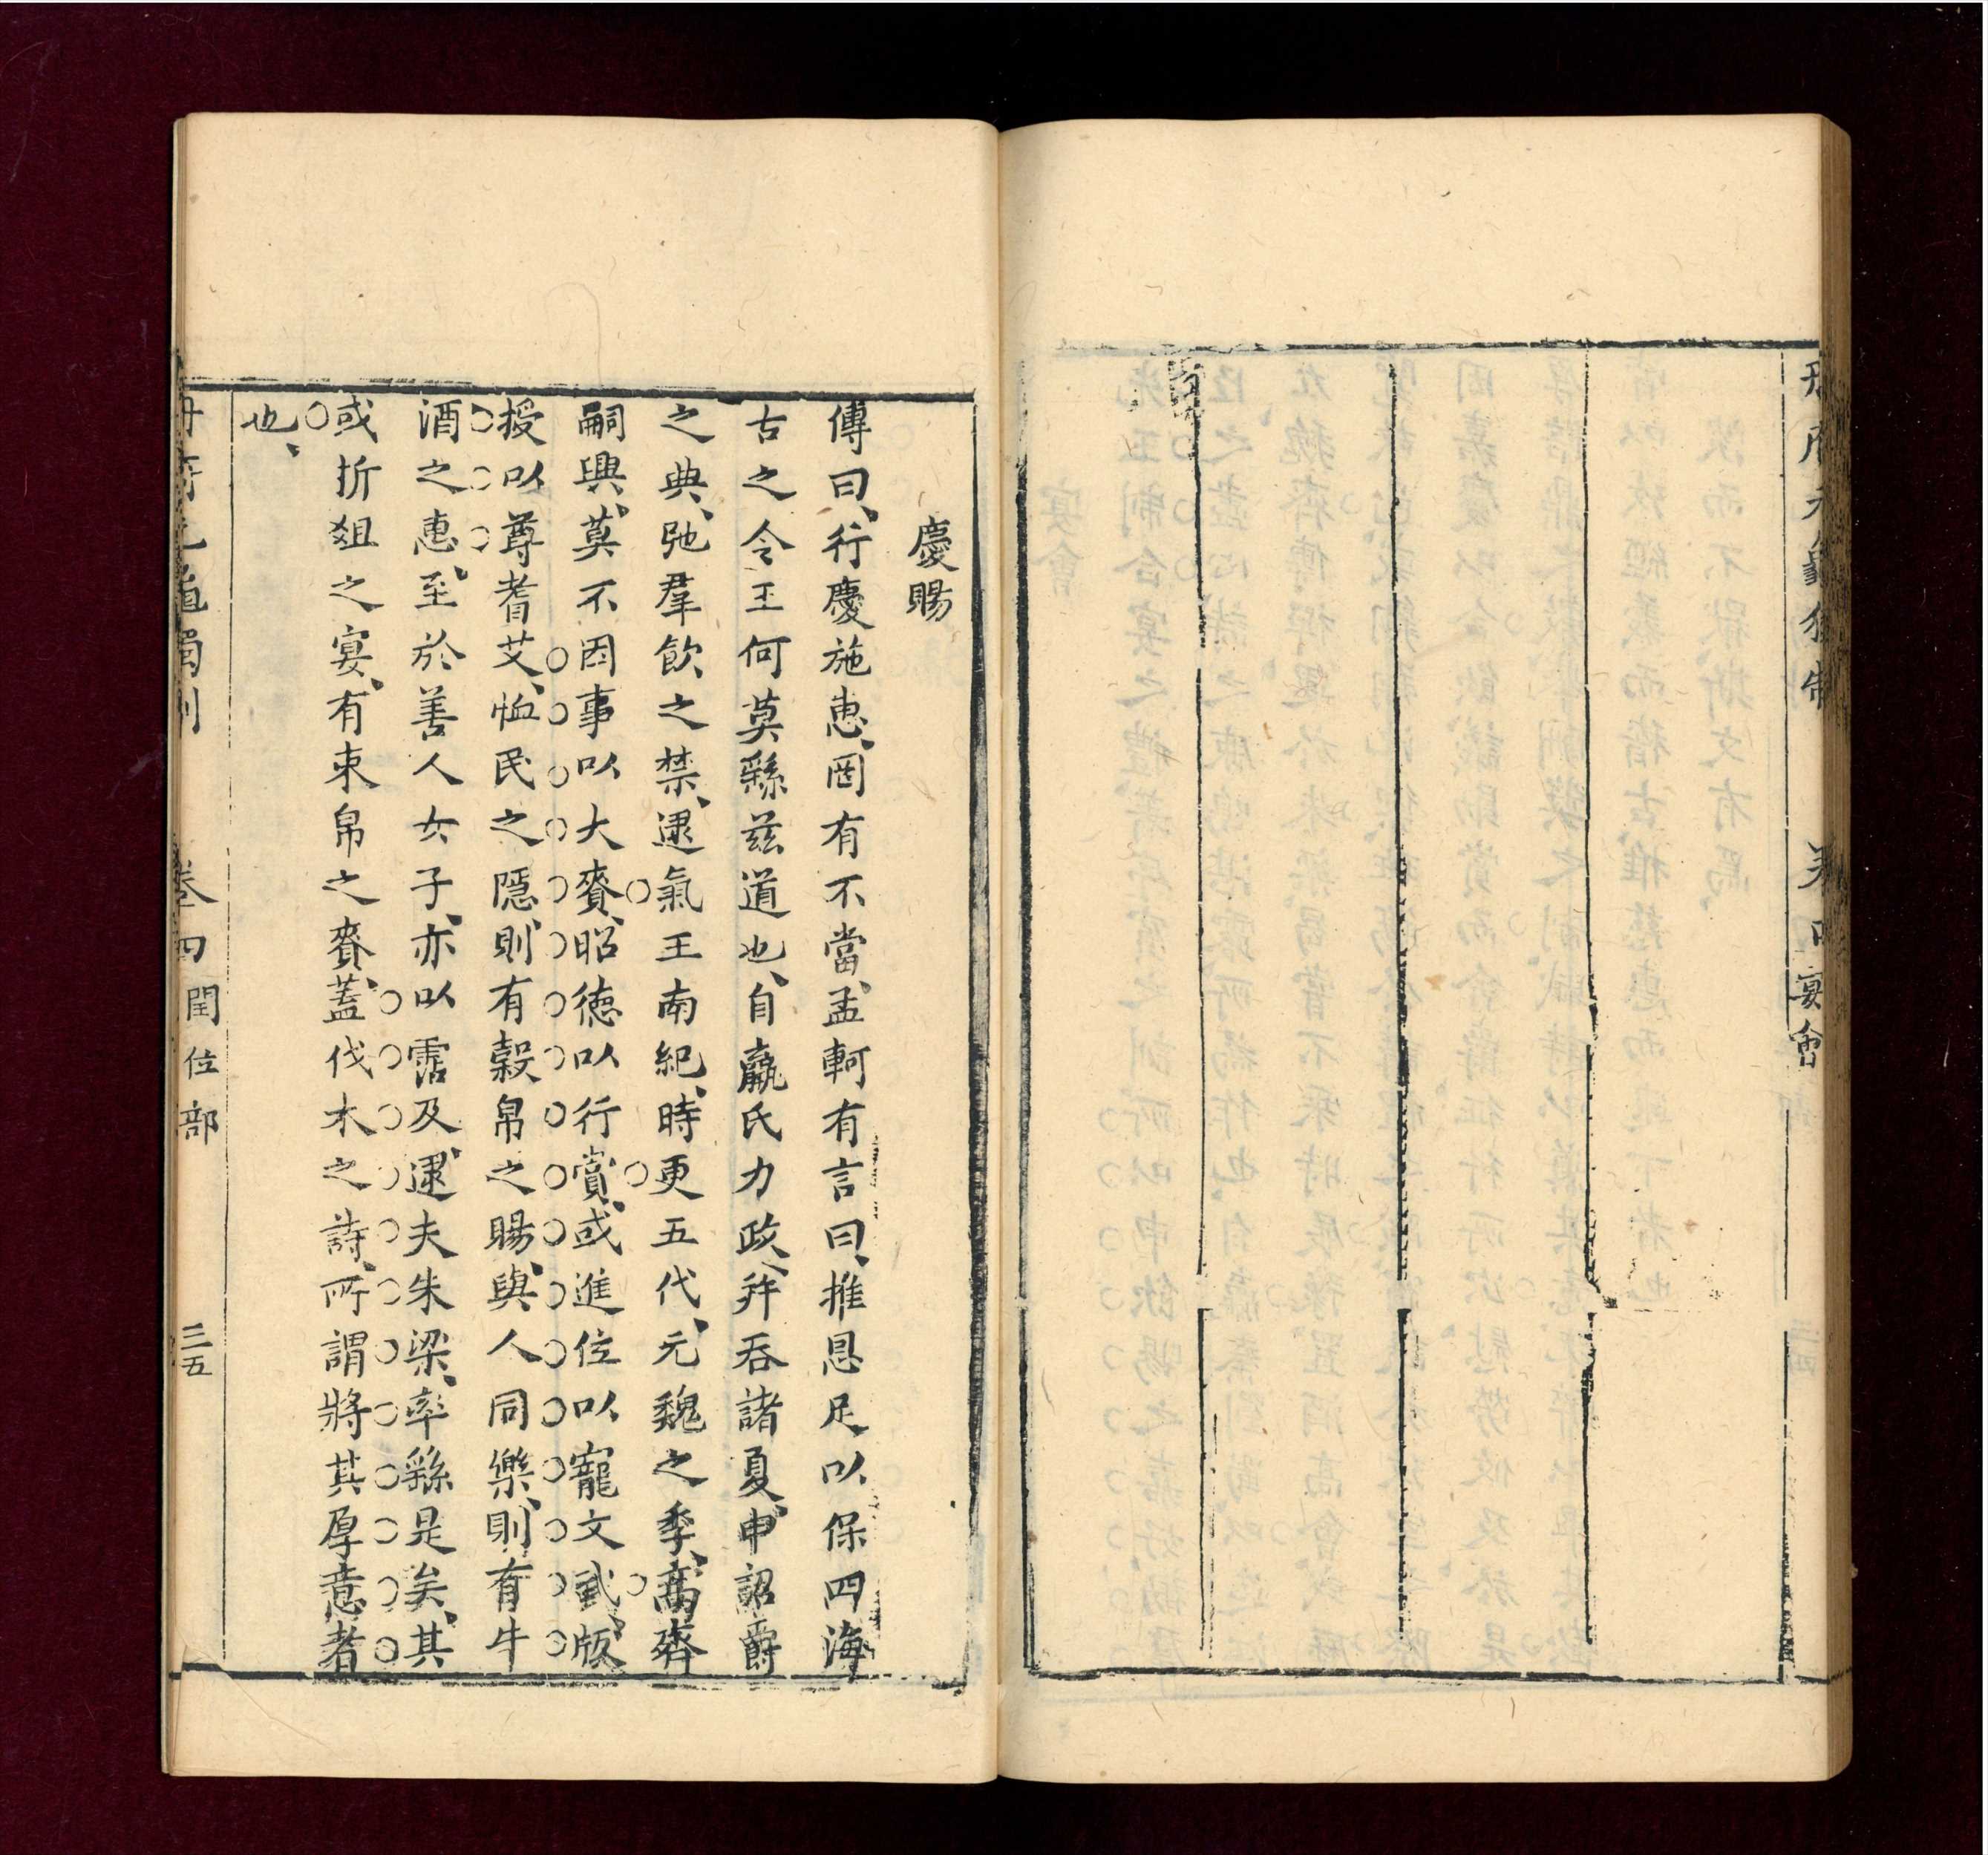 冊府元龜獨制 卷四宴會
慶賜
傳曰、行慶施惠、罔有不當、孟軻有言曰、推恩足以保四海
古之令王何莫繇茲道也、自嬴氏力政、并吞諸夏、申詔爵
之典、弛羣飲之禁、逮氣王南紀、時更五代、元魏之季、高齊
嗣興、莫不因事以大賚、昭德以行賞、或進位以寵文武、版
授以尊耆艾、恤民之隱、則有穀帛之賜、與人同樂、則有牛
酒之惠、至於善人女子、亦以霑及、逮夫朱梁、率繇是矣、其
或折俎之宴、有束帛之賚、蓋伐木之詩、所謂將其厚意者
也、
冊府元龜獨制 卷四閏位部 三五